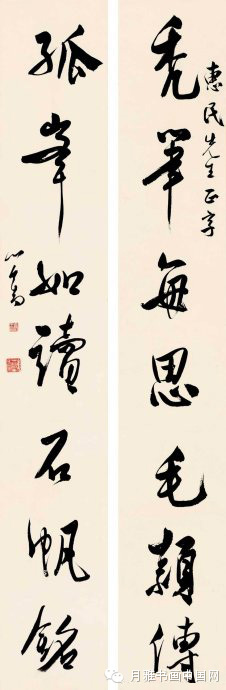 惠民先生正字
秃筆每思毛穎傳
孤峯如讀石帆銘
心畬
月雅书画中国网